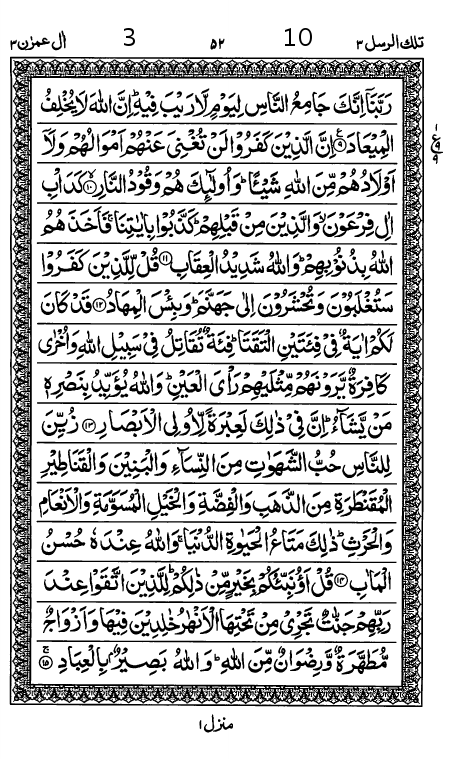 تلك الرسل ٣ 10 ٥٢ 3 اٰل عمرٰن ٣
رَبَّنَاۤ اِنَّكَ جَامِعُ النَّاسِ لِيَوْمٍ لَّا رَيْبَ فِيْهِ ؕ اِنَّ اللّٰهَ لَا يُخْلِفُ
الْمِيْعَادَ ۹ اِنَّ الَّذِيْنَ كَفَرُوْا لَنْ تُغْنِيَ عَنْهُمْ اَمْوَالُهُمْ وَلَاۤ
اَوْلَادُهُمْ مِّنَ اللّٰهِ شَيْـًٔا ؕ وَاُولٰٓئِكَ هُمْ وَقُوْدُ النَّارِ ۱۰ كَدَاْبِ
اٰلِ فِرْعَوْنَ ۙ وَالَّذِيْنَ مِنْ قَبْلِهِمْ ؕ كَذَّبُوْا بِاٰيٰتِنَا ۚ فَاَخَذَهُمُ
اللّٰهُ بِذُنُوْبِهِمْ ؕ وَاللّٰهُ شَدِيْدُ الْعِقَابِ ۱۱ قُلْ لِّلَّذِيْنَ كَفَرُوْا
سَتُغْلَبُوْنَ وَتُحْشَرُوْنَ اِلٰى جَهَنَّمَ ؕ وَبِئْسَ الْمِهَادُ ۱۲ قَدْ كَانَ
لَكُمْ اٰيَةٌ فِيْ فِئَتَيْنِ الْتَقَتَا ؕ فِئَةٌ تُقَاتِلُ فِيْ سَبِيْلِ اللّٰهِ وَاُخْرٰى
كَافِرَةٌ يَّرَوْنَهُمْ مِّثْلَيْهِمْ رَاْيَ الْعَيْنِ ؕ وَاللّٰهُ يُؤَيِّدُ بِنَصْرِهٖ
مَنْ يَّشَآءُ ؕ اِنَّ فِيْ ذٰلِكَ لَعِبْرَةً لِّاُولِي الْاَبْصَارِ ۱۳ زُيِّنَ
لِلنَّاسِ حُبُّ الشَّهَوٰتِ مِنَ النِّسَآءِ وَالْبَنِيْنَ وَالْقَنَاطِيْرِ
الْمُقَنْطَرَةِ مِنَ الذَّهَبِ وَالْفِضَّةِ وَالْخَيْلِ الْمُسَوَّمَةِ وَالْاَنْعَامِ
وَالْحَرْثِ ؕ ذٰلِكَ مَتَاعُ الْحَيٰوةِ الدُّنْيَا ۚ وَاللّٰهُ عِنْدَهٗ حُسْنُ
الْمَاٰبِ ۱۴ قُلْ اَؤُنَبِّئُكُمْ بِخَيْرٍ مِّنْ ذٰلِكُمْ ؕ لِلَّذِيْنَ اتَّقَوْا عِنْدَ
رَبِّهِمْ جَنّٰتٌ تَجْرِيْ مِنْ تَحْتِهَا الْاَنْهٰرُ خٰلِدِيْنَ فِيْهَا وَاَزْوَاجٌ
مُّطَهَّرَةٌ وَّرِضْوَانٌ مِّنَ اللّٰهِ ؕ وَاللّٰهُ بَصِيْرٌۢ بِالْعِبَادِ ۱۵
منزل ۱